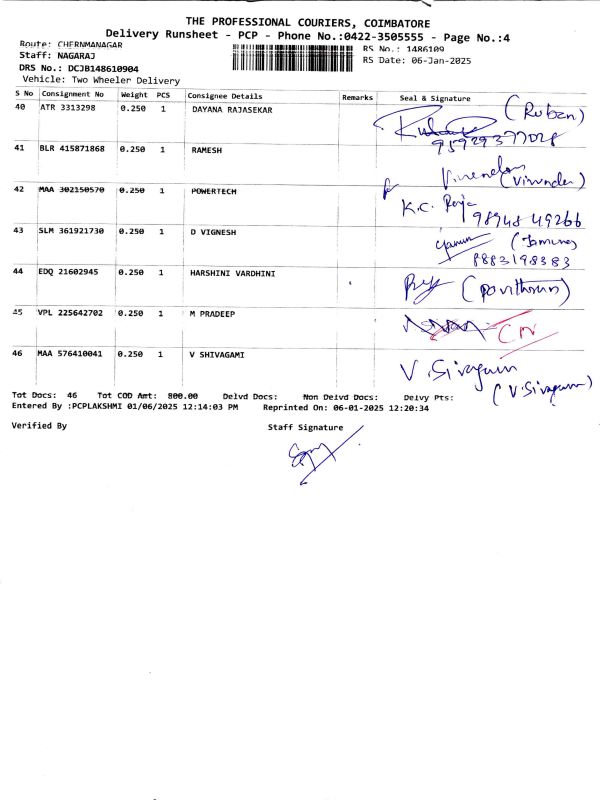 THE PROFESSIONAL COURIERS, COIMBATORE
Delivery Runsheet - PCP - Phone No.:0422-3505555 - Page No.:4
Route: CHERNMANAGAR RS No.: 1486109
Staff: NAGARAJ RS Date: 06-Jan-2025
DRS No.: DCJB148610904
Vehicle: Two Wheeler Delivery
S No Consignment No Weight PCS Consignee Details Remarks Seal & Signature
40 ATR 3313298 0.250 1 DAYANA RAJASEKAR (Ruban)
41 BLR 415871868 0.250 1 RAMESH
42 MAA 302150570 0.250 1 POWERTECH K.C. Raja
98948 49266
43 SLM 361921730 0.250 1 D VIGNESH
8883198383
44 EDQ 21602945 0.250 1 HARSHINI VARDHINI
45 VPL 225642702 0.250 1 M PRADEEP
46 MAA 576410041 0.250 1 V SHIVAGAMI V.Sivagam
(V.Sivagam)
Tot Docs: 46 Tot COD Amt: 800.00 Delvd Docs: Non Delvd Docs: Delvy Pts:
Entered By :PCPLAKSHMI 01/06/2025 12:14:03 PM Reprinted On: 06-01-2025 12:20:34
Verified By Staff Signature